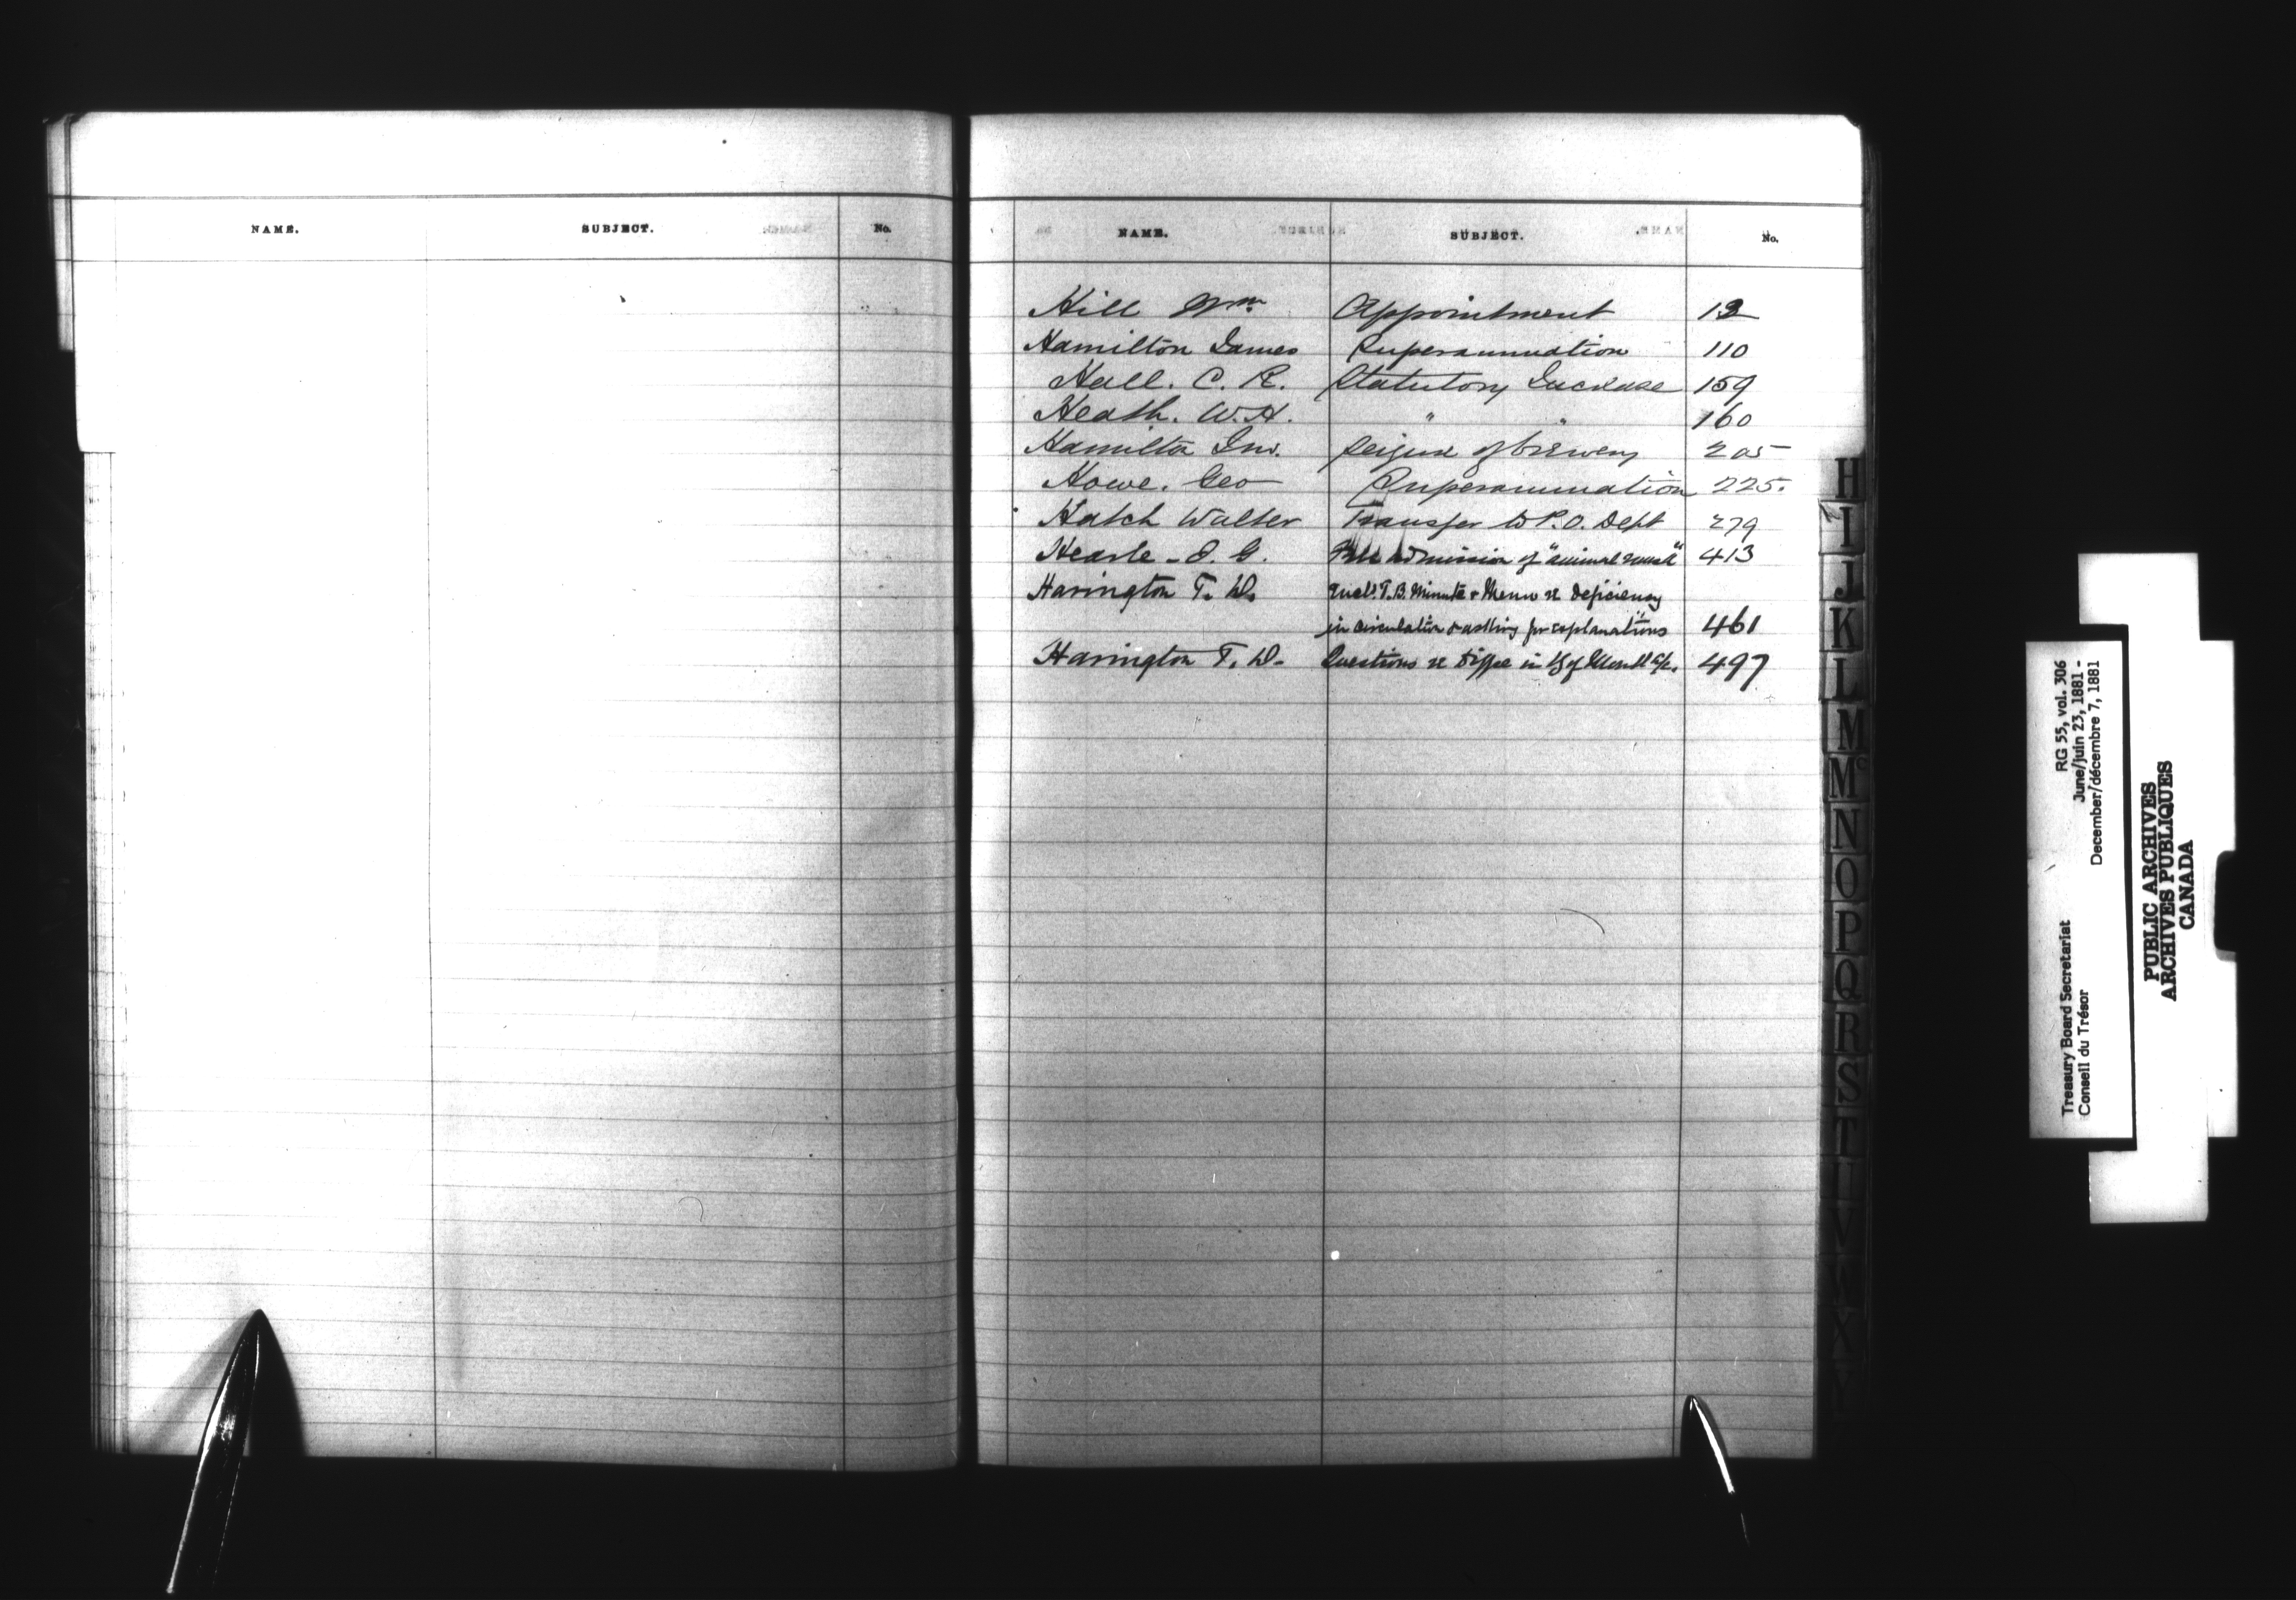 NAME. SUBJECT. No.
NAME. SUBJECT. No.
Hill Wm. Appointment 13
Hamilton James Superannuation 110
Hall. C. R. Statutory Increase 159
Heath. W. H. " " 160
Hamilton Jno. Seizure of brewery 205
Howe. Geo Superannuation 225.
Hatch Walter Transfer to P.O. Dept 279
Hearle - J. G. Free admission of "animal 413
Harington T. D. Encl. T.B. Minute & Memo re Deficiency
in circulation & asking for explanations 461
Harington T. D. Questions re Diffce in B of Montl a/c. 497
H
I
J
K
L
M
Mc
N
O
P
Q
R
S
T
U
V
W
X
Y
Treasury Board Secretariat RG 55, vol. 306
Conseil du Trésor June/juin 23, 1881 -
December/décembre 7, 1881
PUBLIC ARCHIVES
ARCHIVES PUBLIQUES
CANADA